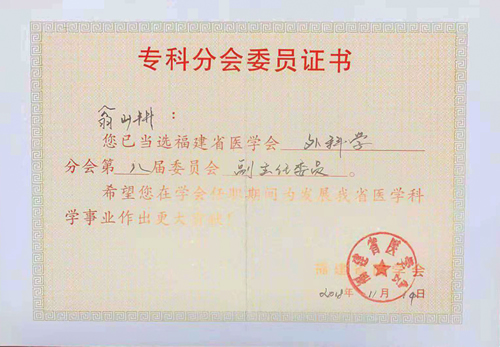 专科分会委员证书
翁山耕：
您已当选福建省医学会外科学
分会第八届委员会副主任委员。
希望您在学会任职期间为发展我省医学科
学事业作出更大贡献！
福建省医学会
福建省医学会
2018年11月19日